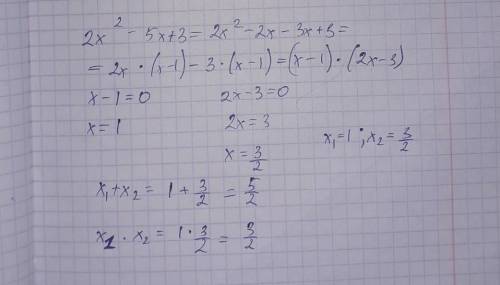 2x² - 5x+3 = 2x² - 2x - 3x + 3 =
= 2x · (x-1) - 3 · (x-1) = (x-1) · (2x-3)
x - 1 = 0 2x - 3 = 0
x = 1 2x = 3
x = 3/2 x₁ = 1 ; x₂ = 3/2
x₁ + x₂ = 1 + 3/2 = 5/2
x₁ · x₂ = 1 · 3/2 = 3/2